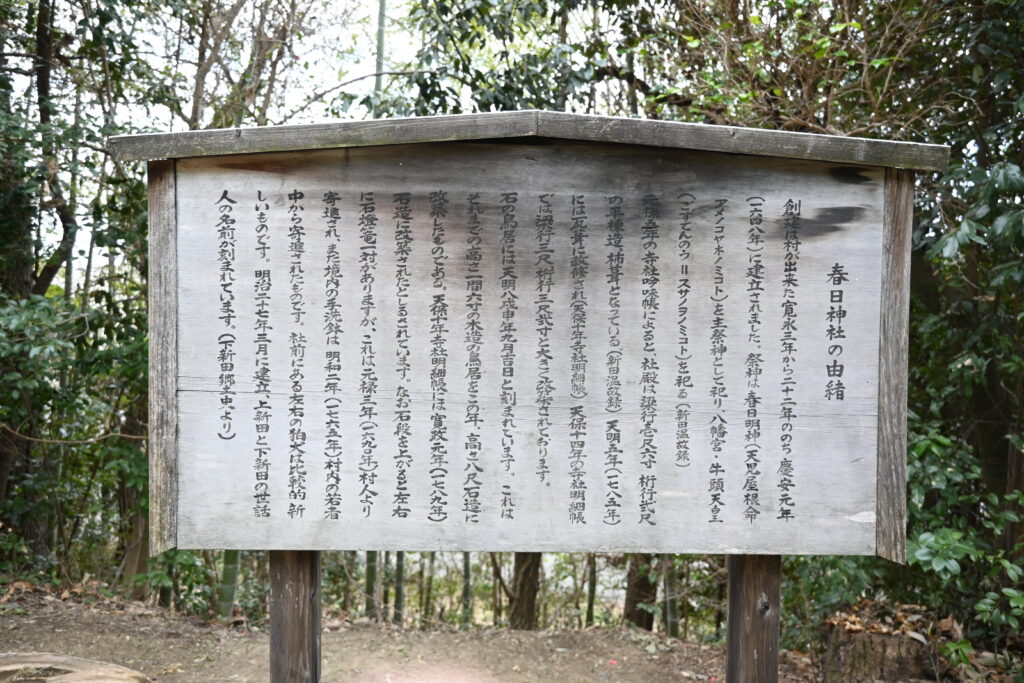 春日神社の由緒
創建は村が出来た寛永三年から二十二年ののち慶安元年
(一六四八年)に建立されました。祭神は、春日明神(天児屋根命
アメノコヤネノミコト)を主祭神として祀り、八幡宮・牛頭天皇
(ごずてんのう=スサノヲノミコト)を祀る(新田温故録)
元禄五年の寺社吟味帳によると、社殿は梁行壱尺六寸 桁行弐尺
の草様造、杮葺となっている。(新田温故録) 天明五年(一七八五年)
には瓦葺に改修され(天保十年寺社明細帳) 天保十四年の寺社明細帳
では梁行二尺桁行三尺弐寸と大きく改築されております。
石の鳥居には天明八戊申年九月吉日と刻まれています。これは
それまでの高さ二間六寸の木造の鳥居をこの年、高さ八尺石造に
改築したものである。天保十年寺社明細帳には寛政元年(一七八九年)
石造に改築されたとしるされています。なお石段を上がると左右
に石燈篭一対がありますが、これは元禄三年(一六九〇年)村人より
寄進され、また境内の手洗鉢は明和二年(一七六五年)村内の若者
中から寄進されたものです。社前にある左右の狛犬は比較的新
しいものです。明治二十七年三月に建立、上新田と下新田の世話
人の名前が刻まれています。(下新田郷土史より)